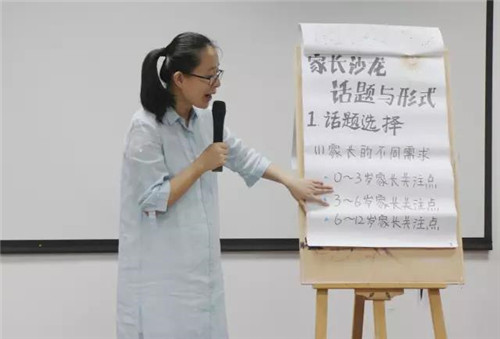 家长沙龙
话题与形式
1.话题选择
(1)家长的不同需求
• 0~3岁家长关注点
• 3~6岁家长关注点
• 6~12岁家长关注点